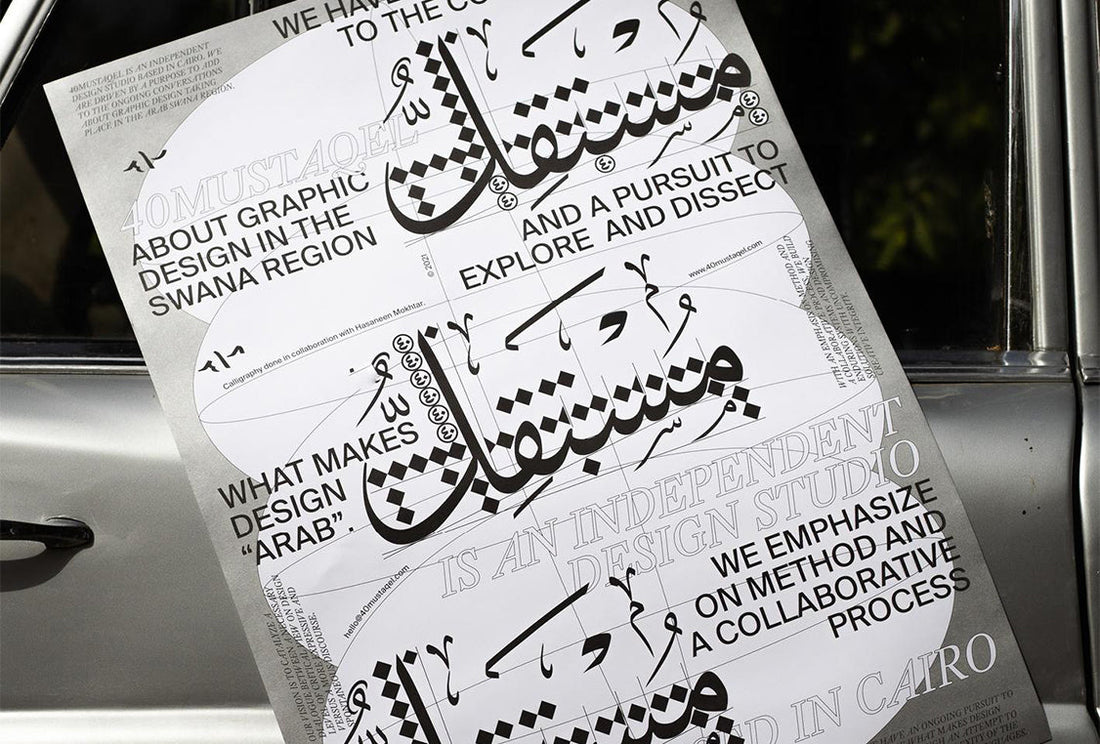 WE HAVE
TO THE CO
40MUSTAQEL IS AN INDEPENDENT
DESIGN STUDIO BASED IN CAIRO. WE
ARE DRIVEN BY A PURPOSE TO ADD
TO THE ONGOING CONVERSATIONS
ABOUT GRAPHIC DESIGN TAKING
PLACE IN THE ARAB/SWANA REGION.
مستقل
40MUSTAQEL
ABOUT GRAPHIC
DESIGN IN THE
SWANA REGION
AND A PURSUIT TO
EXPLORE AND DISSECT
© 2021
www.40mustaqel.com
Calligraphy done in collaboration with Hasaneen Mokhtar.
WITH AN EMPHASIS ON METHOD AND
COLLABORATIVE PROCESS, WE BUILD
CREATIVE INTEGRITY.
مستقل
WHAT MAKES
DESIGN
“ARAB”.
IS AN INDEPENDENT
DESIGN STUDIO
WE EMPHASIZE
ON METHOD AND
A COLLABORATIVE
PROCESS
hello@40mustaqel.com
OUR VISION IS TO CATALYZE A
مستقل
D IN CAIRO
HAVE AN ONGOING PURSUIT TO
WHAT MAKES DESIGN
AN ATTEMPT TO